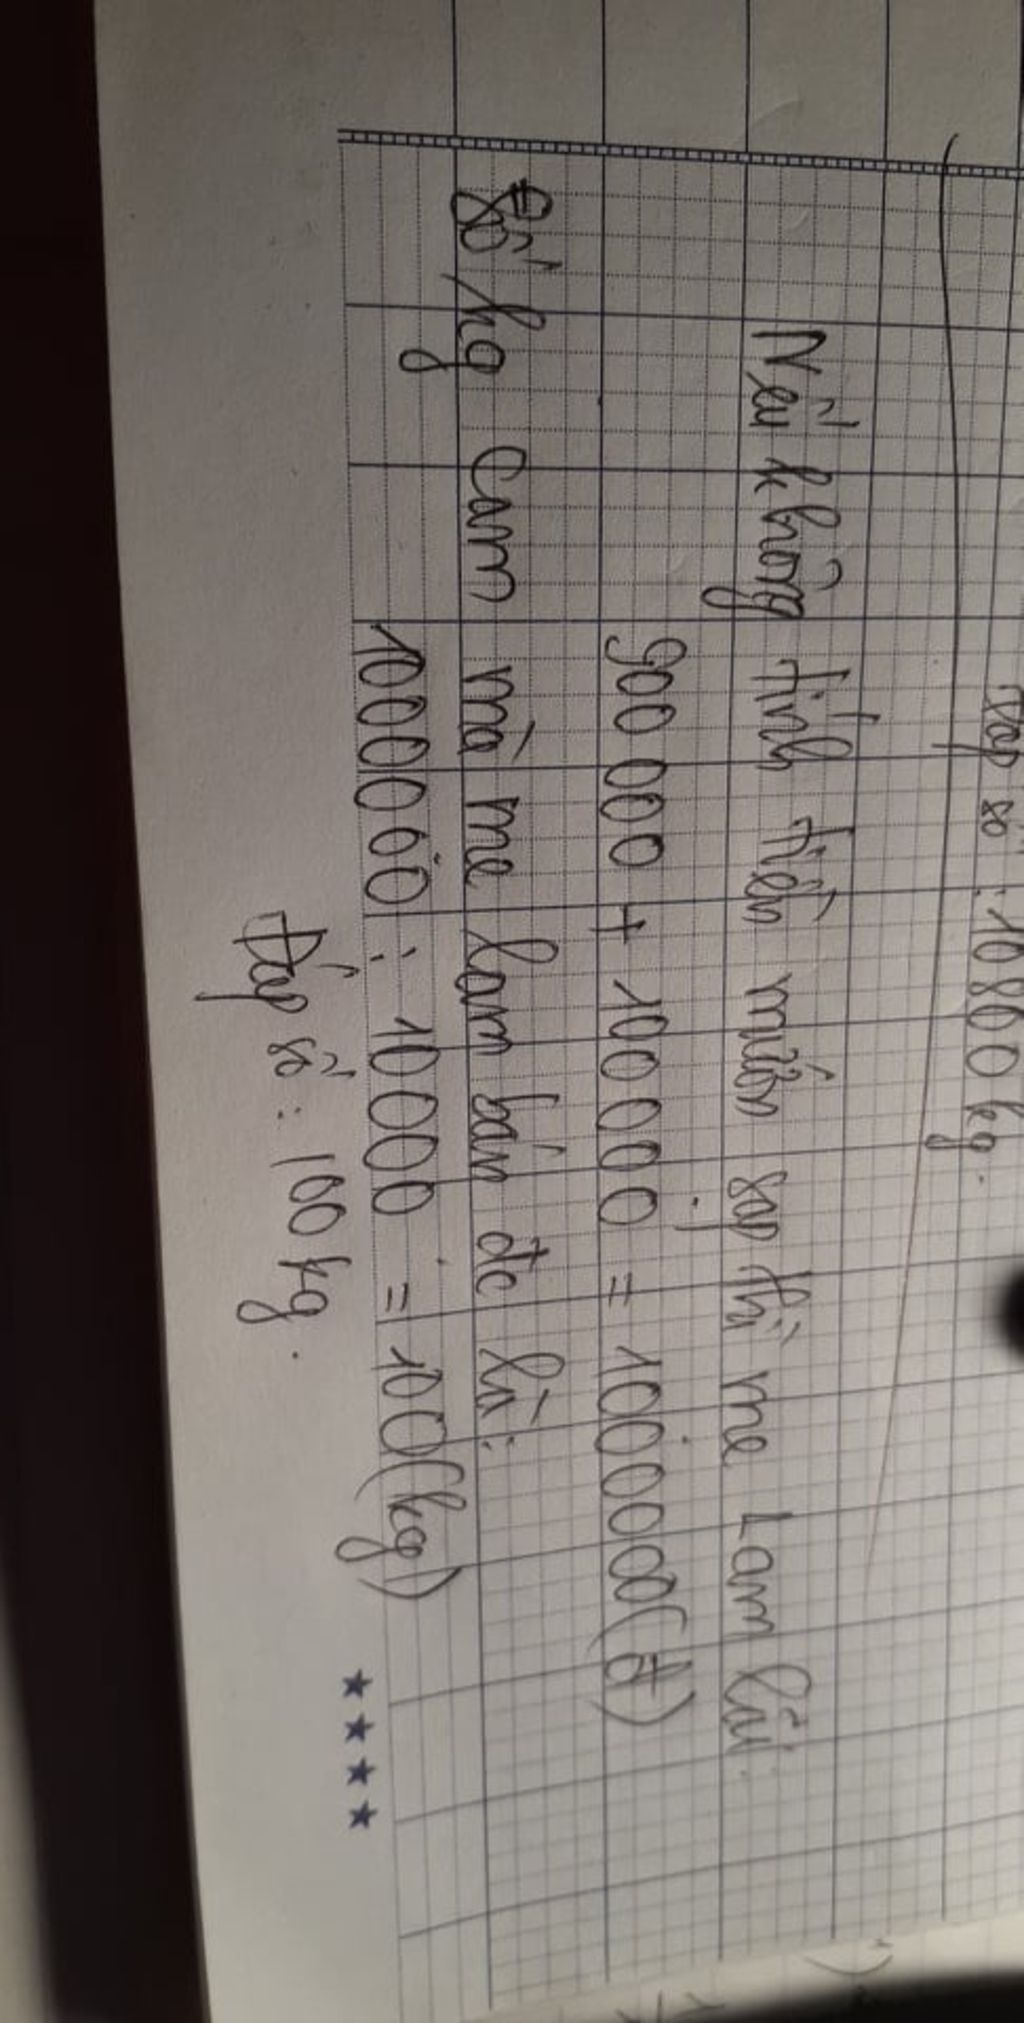 Đáp số : 10800 kg.
Nếu không tính tiền mướn sạp thì mẹ Lam lãi:
900 000 + 100 000 = 1000000(đ)
Số kg cam mà mẹ lam bán đc là:
1000000 : 10000 = 100(kg)
Đáp số : 100 kg.